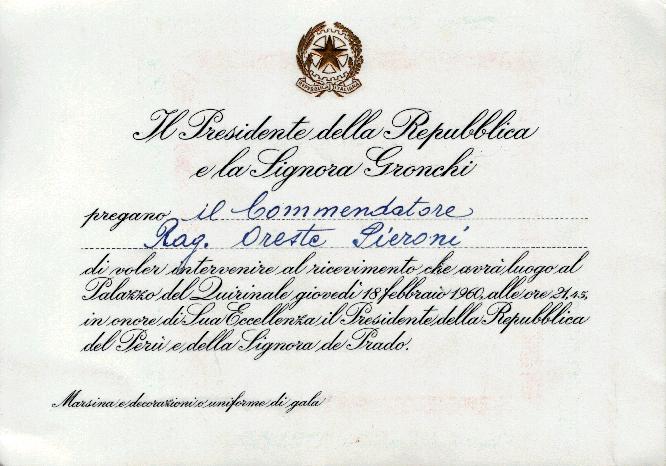 REPVBBLICA ITALIANA
Il Presidente della Repubblica
e la Signora Gronchi
pregano il Commendatore
Rag. Oreste Pieroni
di voler intervenire al ricevimento che avrà luogo al
Palazzo del Quirinale giovedì 18 febbraio 1960, alle ore 21,45,
in onore di Sua Eccellenza il Presidente della Repubblica
del Perù e della Signora de Prado.
Marsina e decorazioni o uniforme di gala